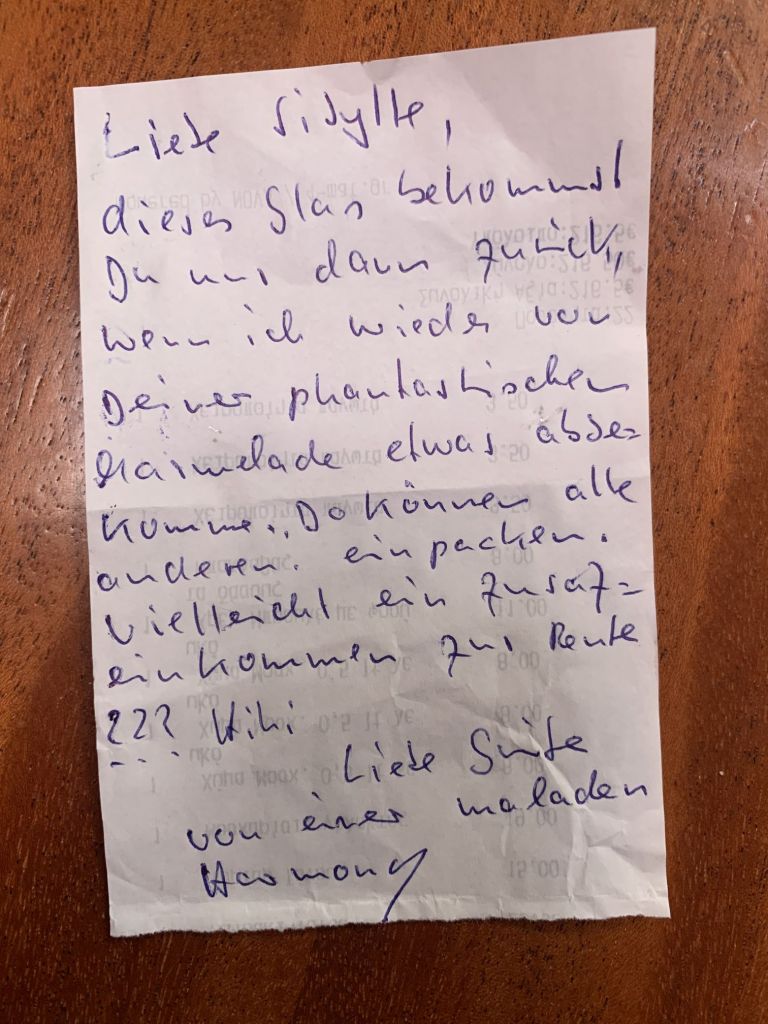 Liebe Sibylle,
dieses Glas bekommst
Du nur dann zurück,
wenn ich wieder von
Deiner phantastischen
Marmelade etwas abbe=
komme. Da können alle
anderen einpacken.
Vielleicht ein Zusatz=
einkommen zur Rente
??? Hihi
Liebe Grüße
von einer maladen
Harmony